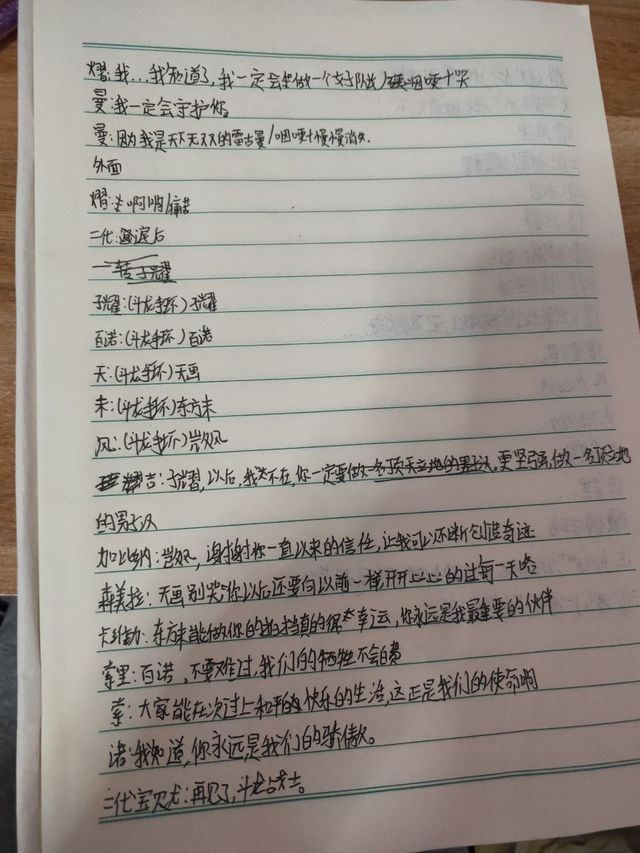 熠:我…我知道了,我一定会做一个好队长/咽哽十哭
曼:我一定会守护你
曼:因为我是天下无双的雷古曼/咽哽十慢慢消失.
外面
熠:啊呐/痛苦
二代:漩涡后
一转子耀
子耀:(斗龙手环)子耀
百诺:(斗龙手环)百诺
天:(斗龙手环)天画
末:(斗龙手环)东方末
风:(斗龙手环)岚风
吉:子耀,以后,我不在,你一定要做一名顶天立地的男子汉,更坚强,做一名顶立地
的男子汉
加比纳:岚风,谢谢你一直以来的信任,让我可以不断创造奇迹
森美拉:天画别哭你以后还要向以前一样开开心心的过每一天咯
卡珊动:东方末能做你的拍挡真的很幸运,你永远是我最重要的伙伴
索里:百诺,不要难过,我们的牺牲不会白费
索:大家能在次过上和平的快乐的生活,这正是我们的使命啊
诺:我知道,你永远是我们的骄傲。
二代宝贝龙:再见了,斗龙战士。